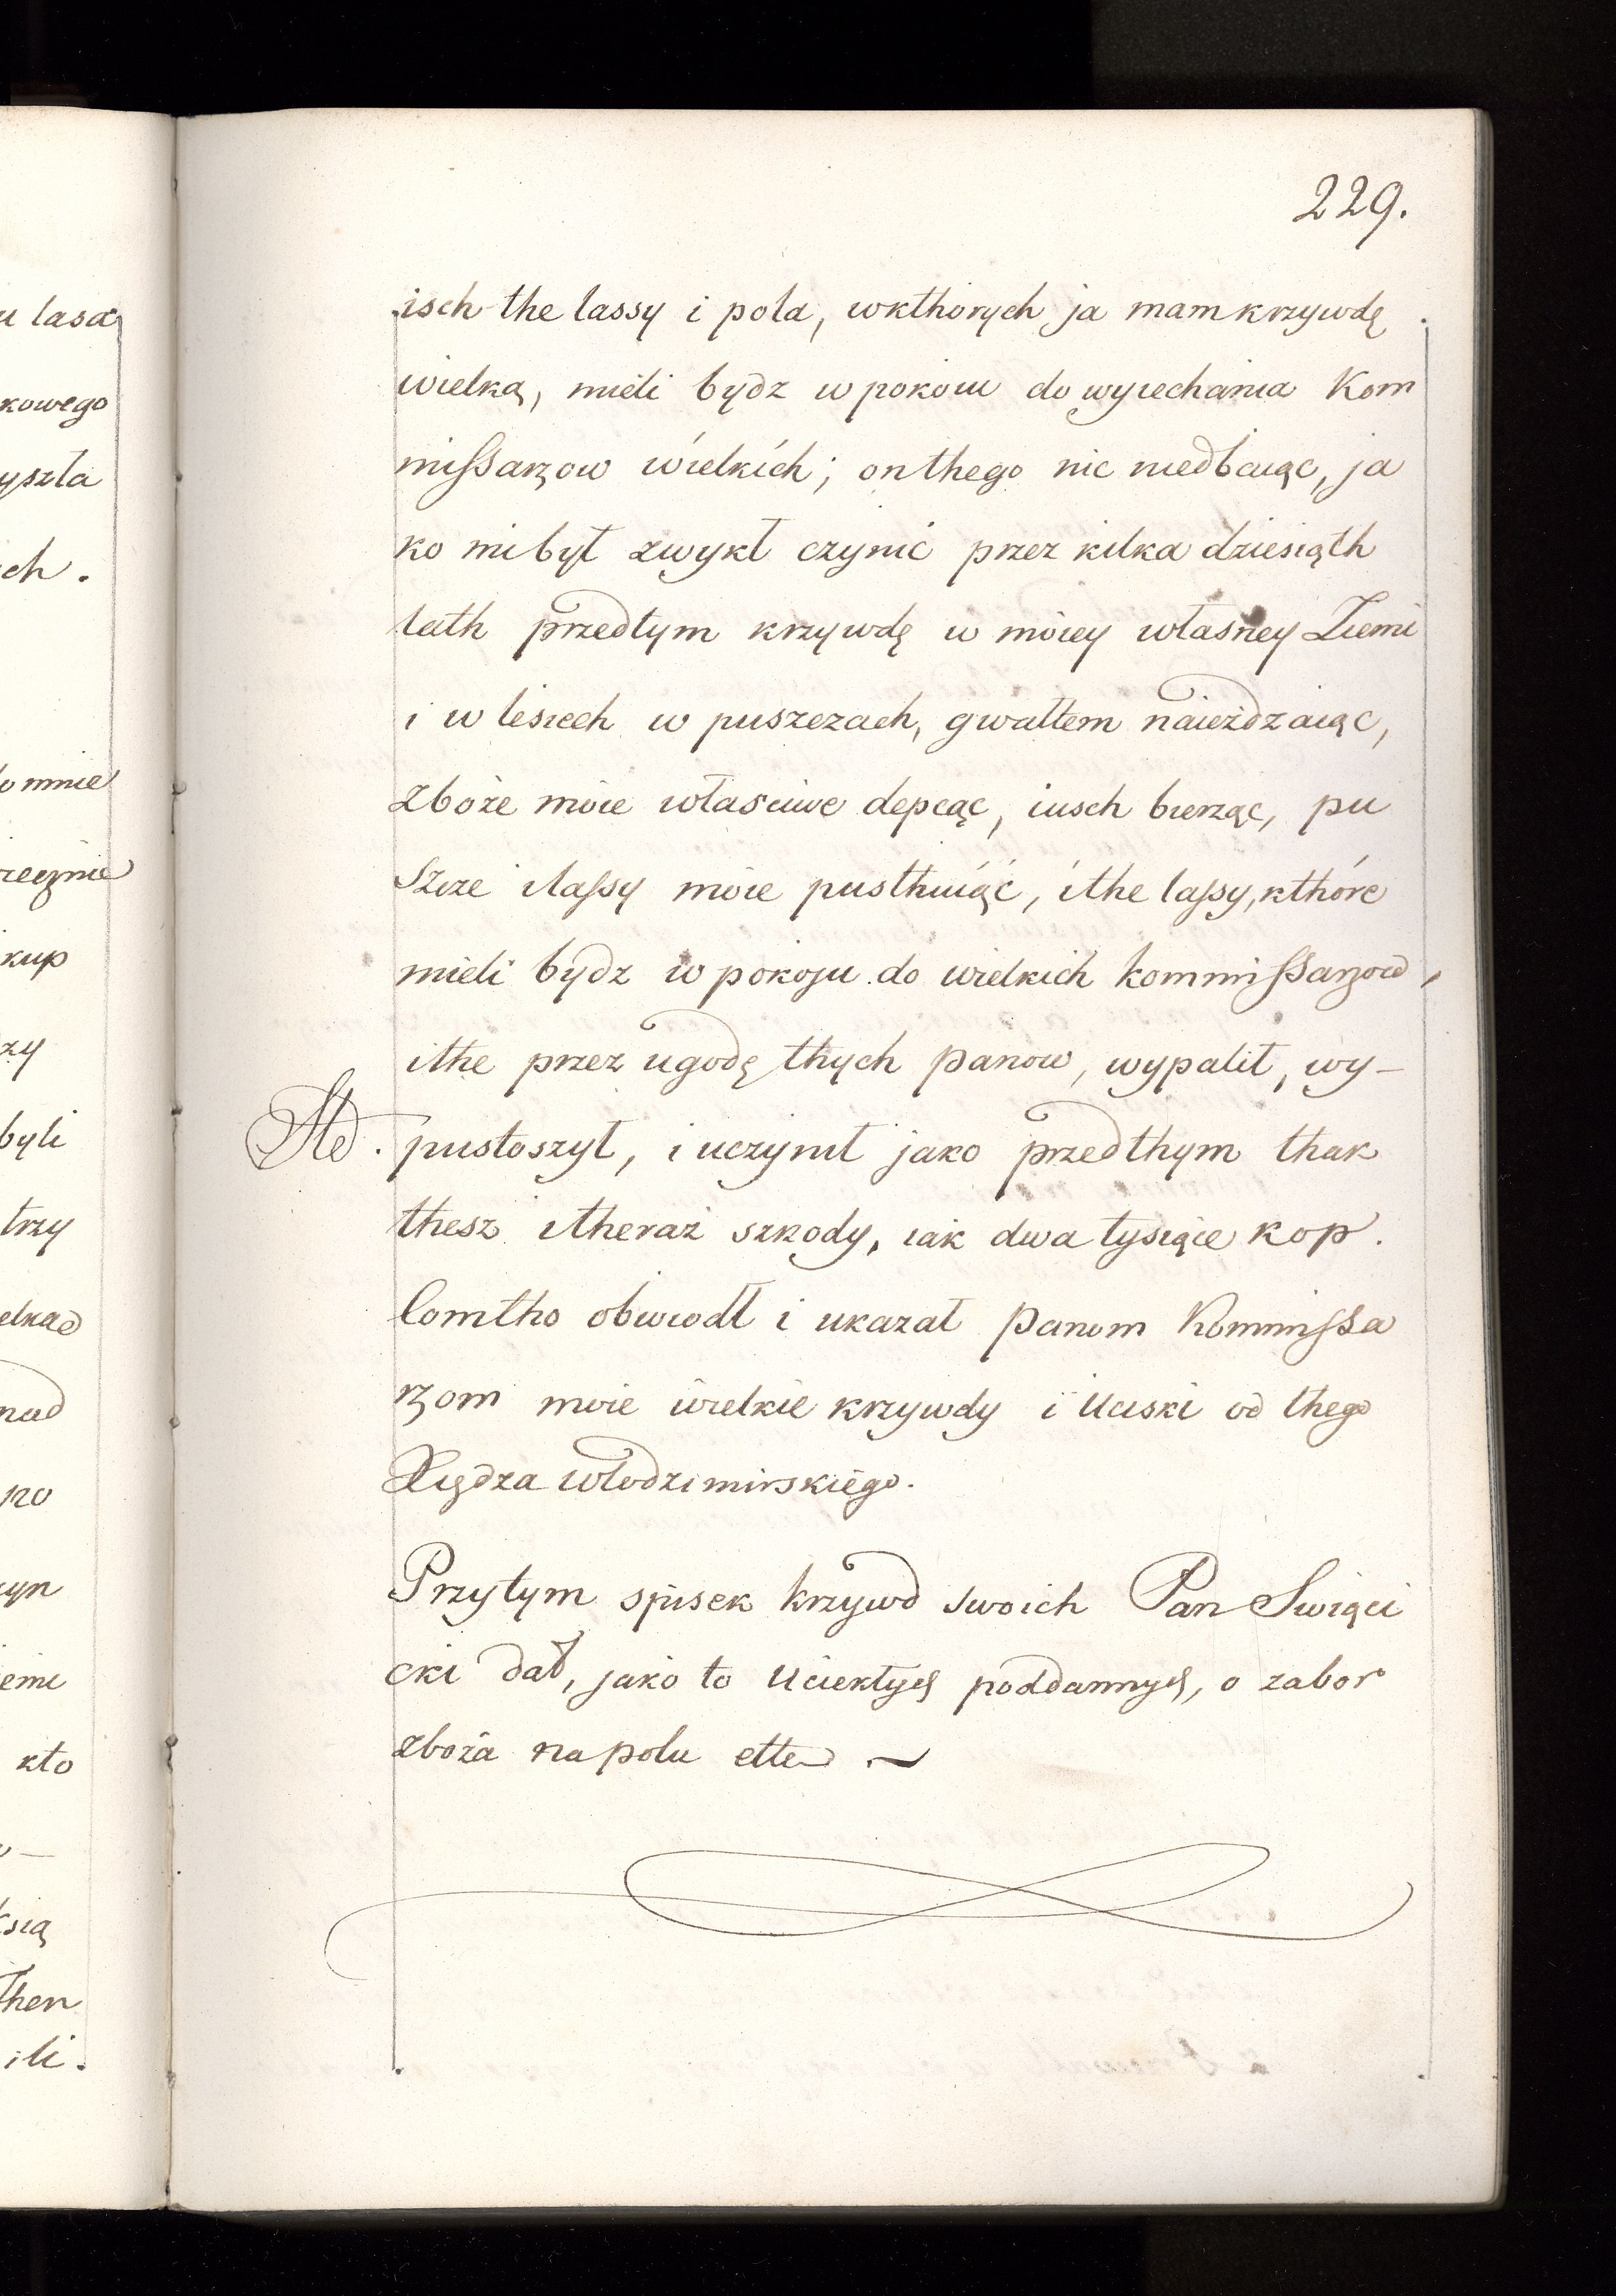 229.
isch the lassy i pola, wkthorych ja mam krzywdę
wielką, mieli bydz w pokoiu do wyiechania Kom
missarzow wielkich; on thego nic niedbaiąc, ja
ko mi był zwykł czynić przez kilka dziesiąth
lath przedtym krzywdę w moiey własney Ziemi
i w lesiech w puszczach, gwałtem naieżdzaiąc,
zboże moie własciwe depcąc, iusch bierząc, pu
szcze i lassy moie pusthuiąć, i the lassy, kthóre
mieli bydz w pokoju do wielkich kommissarzow,
i the przez ugodę thych panow, wypalił, wy-
pustoszył, i uczynił jako przedthym thak
thesz i theraz szkody, iak dwa tysiące kop.
Comtho obwiodł i ukazał panom Kommissa
rzom moie wielkie krzywdy i Uciski od thego
Xiędza włodzimirskiégo.
Przytym spisek krzywd swoich Pan Swięci
cki dał, jako to Uciekłych poddannych, o zabor
zboża na polu ettc ~
u lasa
kowego
yszła
ch.
mnie
kup
zy
byli
trzy
nad
no
kto
then
ili.